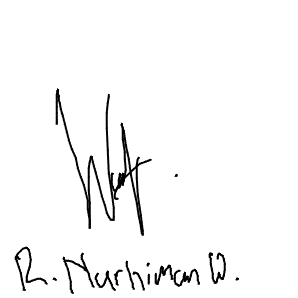 R. Nurhiman W.